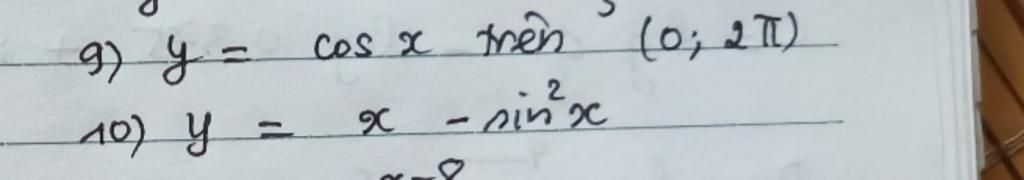 9) y = cos x trên (0; 2π)
10) y = x - sin²x